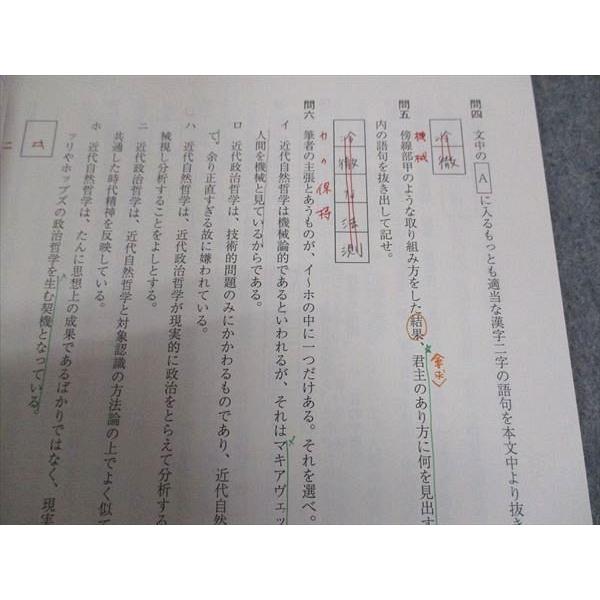 問四 文中の A に入るもっとも適当な漢字二字の語句を本文中より抜き
冷徹
機械
問五 傍線部甲のような取り組み方をした結果、君主のあり方に何を見出す
内の語句を抜き出して記せ。
冷徹な法測
力の保持
問六 筆者の主張とあうものが、イ～ホの中に一つだけある。それを選べ。
イ 近代自然哲学は機械論的であるといわれるが、それはマキアヴェッ
人間を機械と見ているからである。
ロ 近代政治哲学は、技術的問題のみにかかわるものであり、近代自然
て、余り正直すぎる故に嫌われている。
ハ 近代自然哲学は、近代政治哲学が現実的に政治をとらえて分析する
械視し分析することをよしとする。
ニ 近代政治哲学は、近代自然哲学と対象認識の方法論の上でよく似て
共通した時代精神を反映している。
ホ 近代自然哲学は、たんに思想上の成果であるばかりではなく、現実
ァリやホッブズの政治哲学を生む契機となっている。
ニ